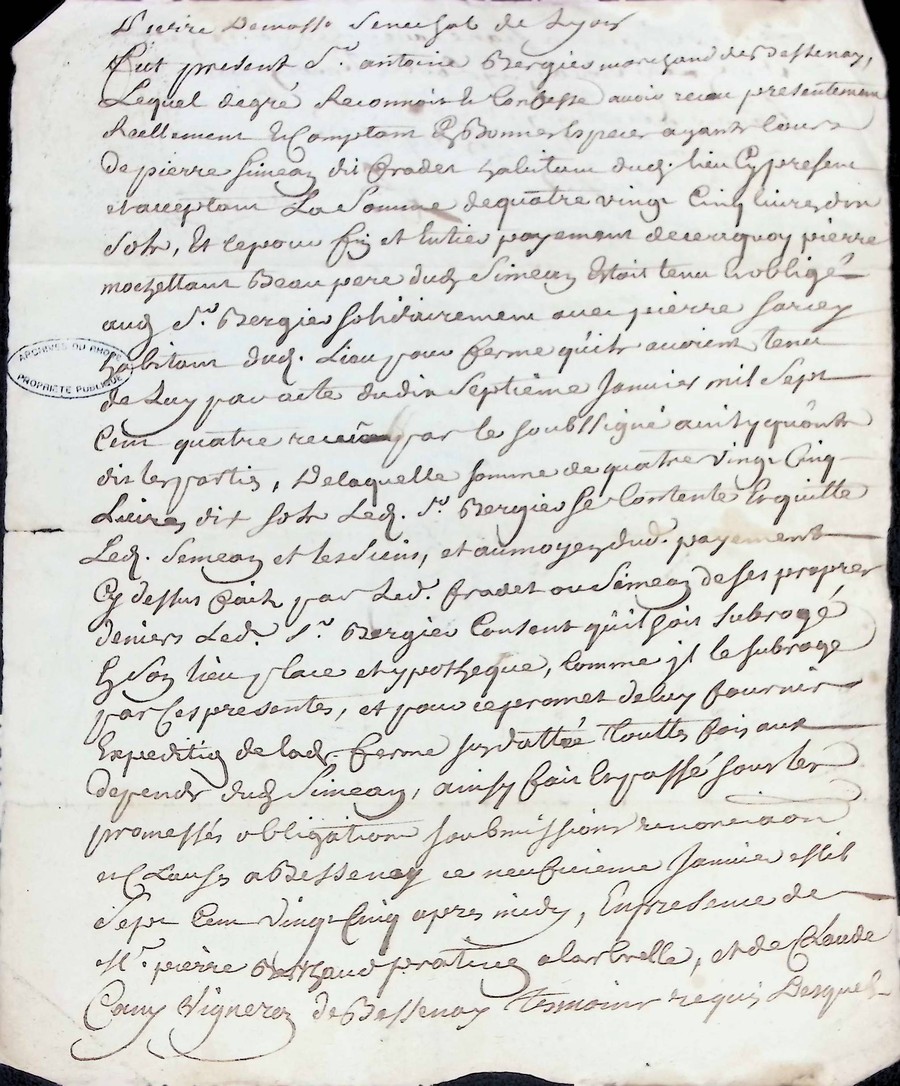 Fut present Sr. antoine Bergier marchand de Bessenay,
Lequel de gré Reconnoit & Confesse avoir receu presentement
Reellement & Comptant En Bonnes Especes ayants Cours
De pierre Simean dit fradet habitant dud. lieu Cy present
et acceptant La Somme de quatre vingt Cinq livres dix
Sols, Et ce pour fin et Entier payement de ce en quoy pierre
mochettant Beau pere dud. Simean Estoit tenu & obligé
aud. Sr. Bergier solidairement avec pierre sarcey
habitant dud. Lieu pour ferme quils avoient tenu
ARCHIVES DU RHONE
PROPRIÉTÉ PUBLIQUE
de Luy par acte du dix Septième Janvier mil Sept
Cent quatre receu par le soubssigné ainsy quont
dit les parties, De laquelle somme de quatre vingt Cinq
Livres dix sols Led. Sr. Bergier Se Contente En quitte
Led. Semean et les Siens, et au moyen dud. payement
Cy dessus fait par Led. fradet ou Simean de ses propres
deniers Led. Sr. Bergier Consent qu'il soit Subrogé
En Son lieu place et ypotheque, Comme jl le subroge
par Ces presentes, et pour ce promet de luy fournir
Expedition de lad. ferme susdattée touttes fois aux
depends dud. Simean, ainsy fait En passé sous les
promesses obligations soubmissions renonciaõn
et Clauses a Bessenay ce neufvieme Janvier
Sept Cent Vingt Cinq apres midy, En presence de
Mr. pierre praticien a larbrelle, et de Claude
Cany Vigneron de Bessenay temoins requis Lesquels